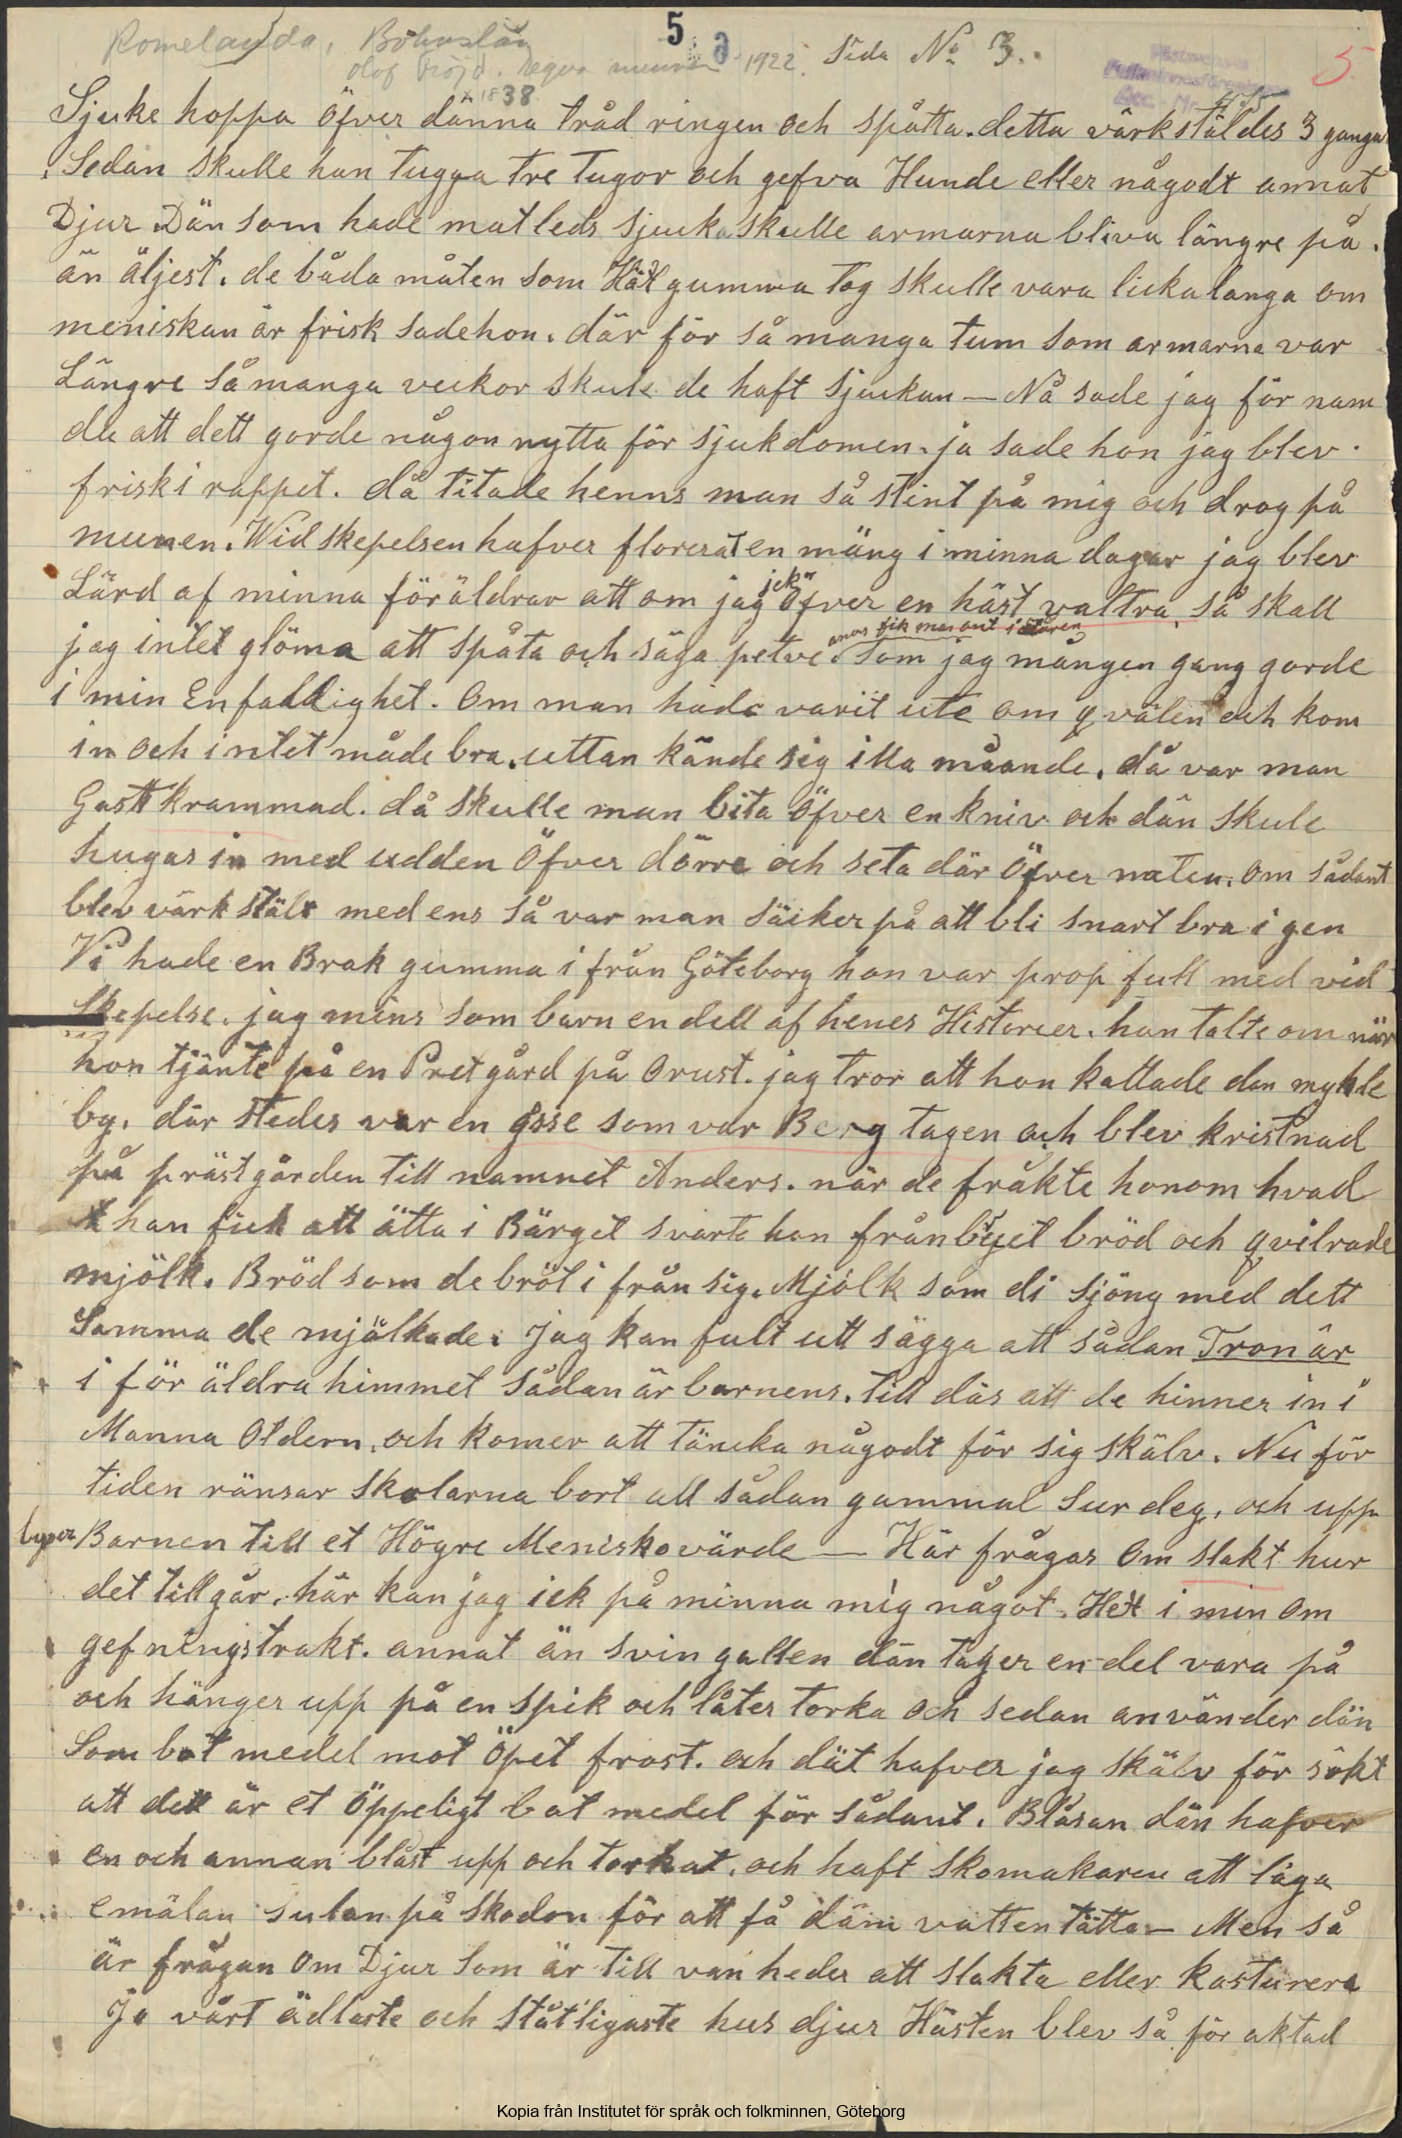 Romelanda, Bohuslän
5
Olof Fröjd. Egna minnen 1922. Sida No 3.
5
1838
Sjuke hoppa öfver dänna tråd ringen och spåtta. detta värkstäldes 3 ganga
. Sedan skulle han tugga tre tugor och gefva Hunde eller någodt annat
Djur. Dän som hade matleds sjuka skulle armarna bliva längre på.
än äljest. de båda måten som Hät gumma tog skulle vara licka langa om
meniskan är frisk sade hon. där för så manga tum som armarna var
Längre så manga veckor skule de haft sjuckan — Nå sade jag för nam
du att dett gorde någon nytta för sjukdomen. ja sade hon jag blev.
frisk i rappet. då titade henns man så stint på mig och drog på
munen. Widskepelsen hafver florerat en mäng i minna dagar jag blev
Lärd af minna föräldrar att om jag jck öfver en häst valtra, så skall
jag intet glöma att spåta och säga petve. Som jag mången gang gorde
i min Enfalldighet. Om man hade varit ute om qvälen och kom
in och intet måde bra. uttan kände sig illa måande. då var man
Gastkrammad. då skulle man bita öfver en kniv och dän skule
hugas in med udden öfver dörre och seta där öfver naten. om sådant
blev värkstält med ens så var man säcker på att bli snart bra i gen
Vi hade en Brak gumma i från Göteborg hon var prop full med vid
Skepelse. jag mins som barn en dell af henes Historier. hon talte om när
hon tjänte på en Pretgård på Orust. jag tror att hon kallade den mykle
by. där stedes var en gsse som var Berg tagen och blev kristnad
på prästgården till namnet Anders. när de fråkte honom hvad
han fick att ätta i Bärget svarte han från byet bröd och qvilrade
mjölk. Bröd som de bröt i från sig. Mjölk som di sjöng med dett
Samma de mjölkade. Jag kan fult utt sägga att sådan Tron är
i för äldra himmet sådan är barnens. till däs att de hinner in i
Manna Oldern, och komer att täncka någodt för sig skälv. Nu för
tiden ränsar skolarna bort all sådan gammal Sur deg, och upp
lyser Barnen till et Högre Meniskovärde — Här frågas om slakt hur
det till går. här kan jag ick på minna mig något. Helt i min om
gefningstrakt. annat än svin gallen dän tager en del vara på
och hänger upp på en spik och låter torka och sedan använder dän
Som bot medel mot öpet frost. och dät hafver jag skälv för sökt
att dett är et öppeligt bot medel för sådant. Blåsan dän hafver
en och annan blåst upp och torkat. och haft skomakaren att läga
emälan sulan på skodon för att få däm vatten tätta — Men så
är frågan om Djur Som är till van heder att slakta eller kasturera
Ja vårt ädlaste och ståtligaste hus djur Hästen blev så för aktad
Kopia från Institutet för språk och folkminnen, Göteborg